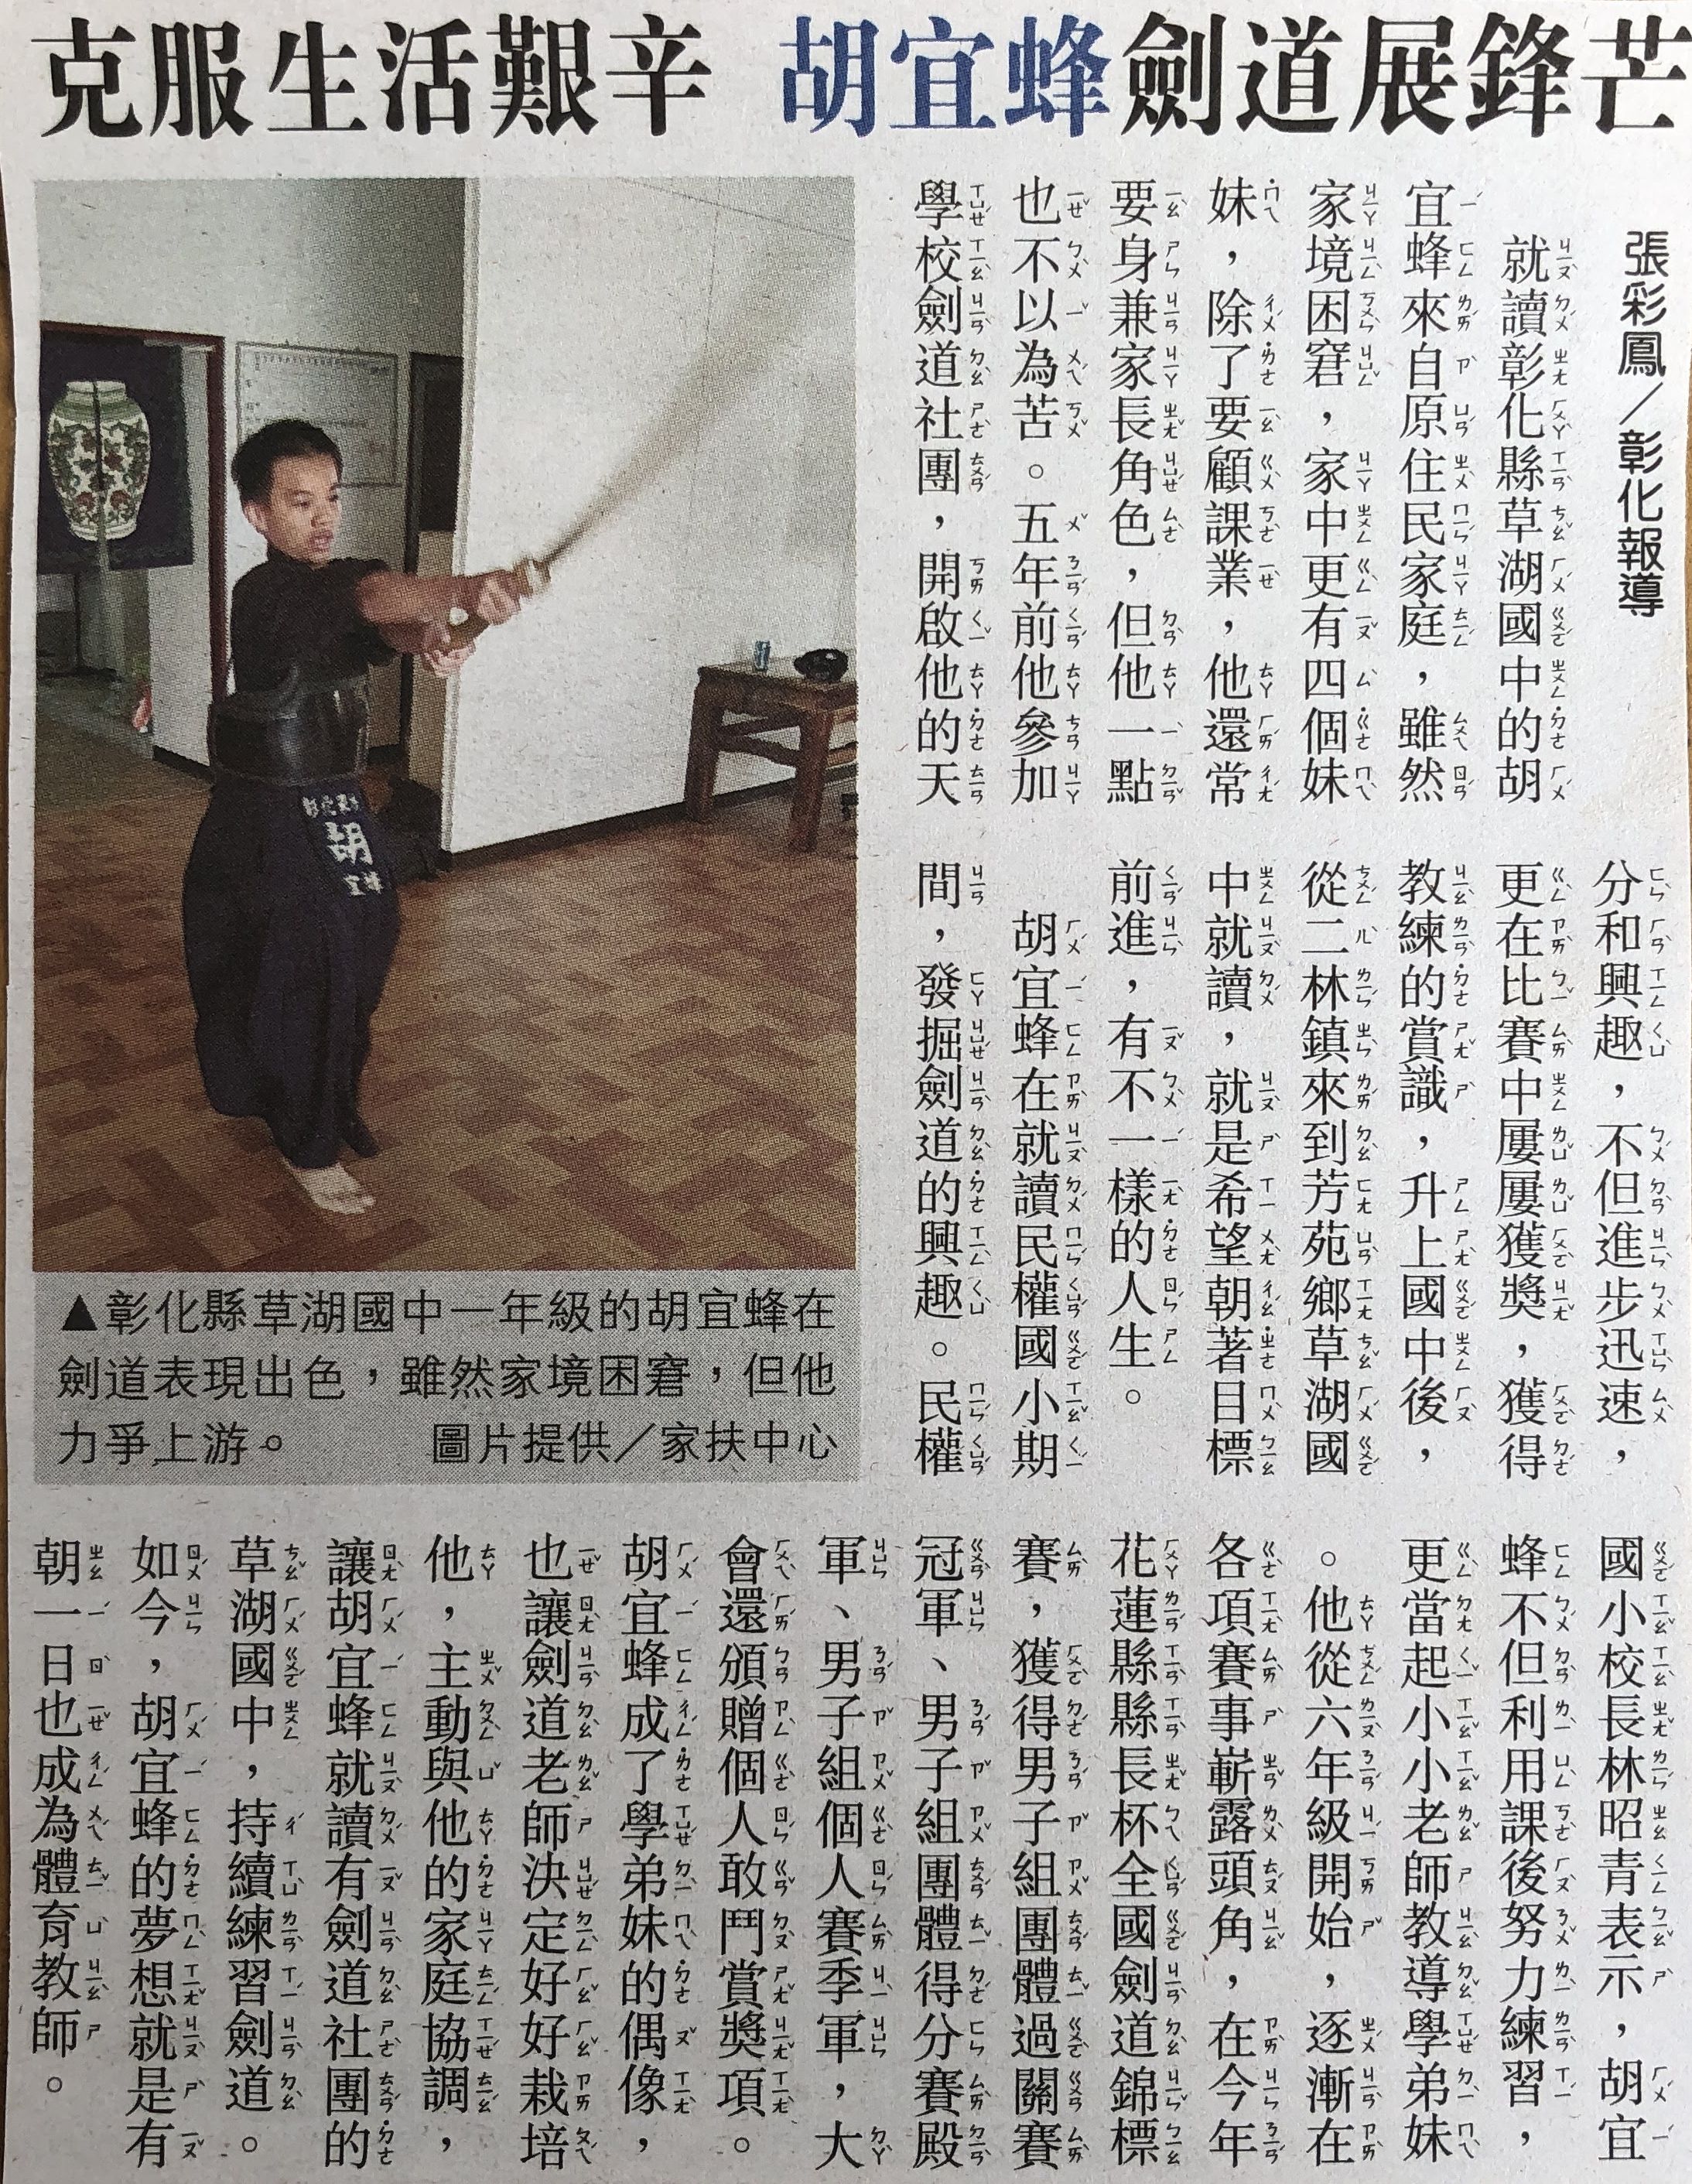 克服生活艱辛 胡宜蜂劍道展鋒芒
張彩鳳／彰化報導
就讀彰化縣草湖國中的胡
宜蜂來自原住民家庭，雖然
家境困窘，家中更有四個妹
妹，除了要顧課業，他還常
要身兼家長角色，但他一點
也不以為苦。五年前他參加
學校劍道社團，開啟他的天
分和興趣，不但進步迅速，
更在比賽中屢屢獲獎，獲得
教練的賞識，升上國中後，
從二林鎮來到芳苑鄉草湖國
中就讀，就是希望朝著目標
前進，有不一樣的人生。
胡宜蜂在就讀民權國小期
間，發掘劍道的興趣。民權
國小校長林昭青表示，胡宜
蜂不但利用課後努力練習，
更當起小小老師教導學弟妹
。他從六年級開始，逐漸在
各項賽事嶄露頭角，在今年
花蓮縣縣長杯全國劍道錦標
賽，獲得男子組團體過關賽
冠軍、男子組團體得分賽殿
軍、男子組個人賽季軍，大
會還頒贈個人敢鬥賞獎項。
胡宜蜂成了學弟妹的偶像，
也讓劍道老師決定好好栽培
他，主動與他的家庭協調，
讓胡宜蜂就讀有劍道社團的
草湖國中，持續練習劍道。
如今，胡宜蜂的夢想就是有
朝一日也成為體育教師。
胡
宜蜂
▲彰化縣草湖國中一年級的胡宜蜂在
劍道表現出色，雖然家境困窘，但他
力爭上游。 圖片提供／家扶中心